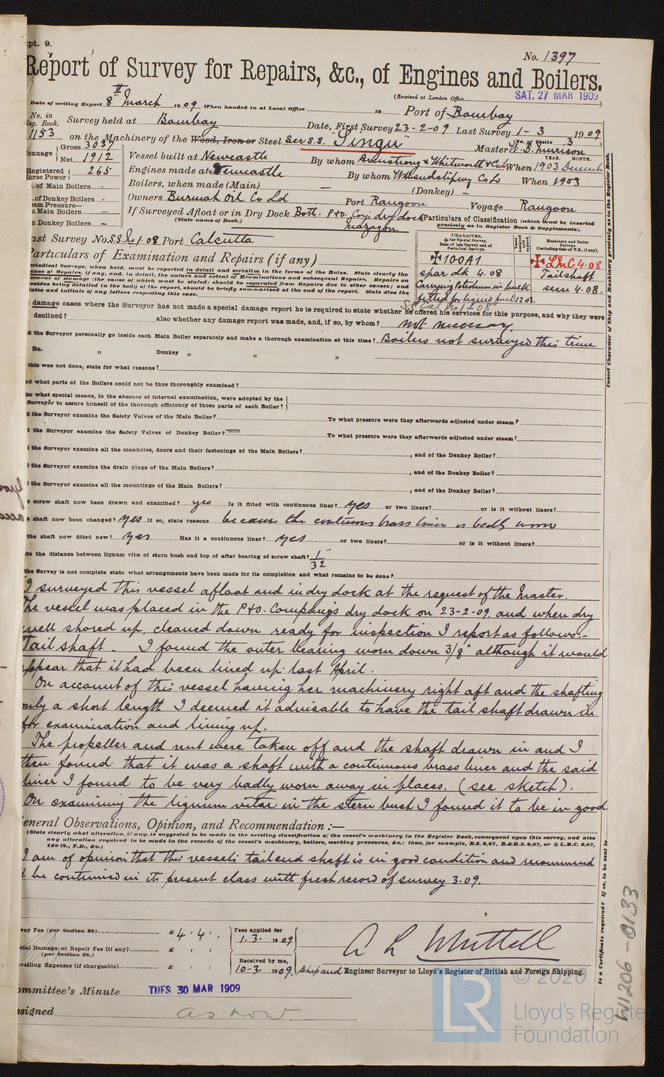 pt. 9.
No. 1397
Report of Survey for Repairs, &c., of Engines and Boilers.
(Received at London Office
SAT. 27 MAR 1909
Date of writing Report 8th March 1909 When handed in at Local Office 19 Port of Bombay
No. in Reg. Book
1153
Survey held at Bombay Date, First Survey 23-2-09 Last Survey 1-3 1909
on the Machinery of the Wood, Iron or Steel Scr S.S. Singu Master W. B. Morrison
Tonnage Gross 3037
Net 1912
Vessel built at Newcastle By whom Armstrong & Whitworth & Co When 1903 December
Registered Horse Power 265
Engines made at Newcastle By whom When 1903
of Main Boilers Boilers, when made (Main) (Donkey)
of Donkey Boilers Owners Burmah Oil Co Ld Port Rangoon Voyage Rangoon
Main Boilers If Surveyed Afloat or in Dry Dock Both. P&O. Coy's dry dock Mazagon
(State name of Dock.)
Donkey Boilers
Last Survey No. Port Calcutta
Particulars of Classification (which must be inserted precisely as in Register Book & Supplements).
+100A1
spar dk 4.08
Carrying petroleum in bulk
fitted for liquid fuel 12.03
+LMC 4.08
Tailshaft
seen 4.08.
Particulars of Examination and Repairs (if any)
damage cases where the Surveyor has not made a special damage report he is required to state whether he offered his services for this purpose, and why they were
declined? also whether any damage report was made, and, if so, by whom? not necessary
the Surveyor personally go inside each Main Boiler separately and make a thorough examination at this time? Boilers not surveyed this time
Do. " Donkey " " "
this was not done, state for what reasons?
what parts of the Boilers could not be thus thoroughly examined?
what special means, in the absence of internal examination, were adopted by the
Surveyor to assure himself of the thorough efficiency of those parts of each Boiler?
the Surveyor examine the Safety Valves of the Main Boiler? To what pressure were they afterwards adjusted under steam?
the Surveyor examine the Safety Valves of Donkey Boiler? To what pressure were they afterwards adjusted under steam?
the Surveyor examine all the manholes, doors and their fastenings of the Main Boilers? , and of the Donkey Boiler?
the Surveyor examine the drain plugs of the Main Boilers? , and of the Donkey Boiler?
the Surveyor examine all the mountings of the Main Boilers? , and of the Donkey Boiler?
screw shaft now been drawn and examined? yes Is it fitted with continuous liner? yes or two liners? or is it without liners?
shaft now been changed? yes If so, state reasons because the continuous brass liner is badly worn
the shaft now fitted new? yes Has it a continuous liner? yes or two liners? or is it without liners?
the distance between lignum vitæ of stern bush and top of after bearing of screw shaft? 1/32
the Survey is not complete state what arrangements have been made for its completion and what remains to be done?
I surveyed this vessel afloat and in dry dock at the request of the Master.
The vessel was placed in the P&O. Company's dry dock on 23-2-09 and when dry
well shored up, cleaned down ready for inspection I report as follows:-
Tail shaft. I found the outer bearing worn down 3/8" although it would
appear that it had been lined up last April.
On account of this vessel having her machinery right aft and the shafting
only a short length I deemed it advisable to have the tail shaft drawn in
for examination and lining up.
The propeller and nut were taken off and the shaft drawn in and I
then found that it was a shaft with a continuous brass liner and the said
liner I found to be very badly worn away in places. (see sketch).
On examining the lignum vitae in the stern bush I found it to be in good
General Observations, Opinion, and Recommendation:—
(State clearly what alteration, if any, is suggested to be made in the existing classification of the vessel's machinery in the Register Book, consequent upon this survey, and also
any alteration required to be made in the records of the vessel's machinery, boilers, working pressures, &c.: thus, for example, B.S. 9,07, B.&M.S. 9,07, or + L.M.C. 9,07,
140 lb., F.D., &c.)
I am of opinion that this vessel's tailend shaft is in good condition and recommend
be continued in its present class with fresh record of survey 3.09.
Survey Fee (per Section 28) £ 4. 4. Fees applied for 1.3.1909
Special Damage or Repair Fee (if any) £
(per Section 28.)
Travelling Expenses (if chargeable) £ Received by me, 10-3-1909
A L Whittell
Ship and Engineer Surveyor to Lloyd's Register of British and Foreign Shipping.
Committee's Minute TUES 30 MAR 1909
Assigned as now
Insert Character of Ship and Machinery precisely as in the Register Book.
Is a Certificate required?
W1206-0133
© 2020
LR
Lloyd's Register
Foundation